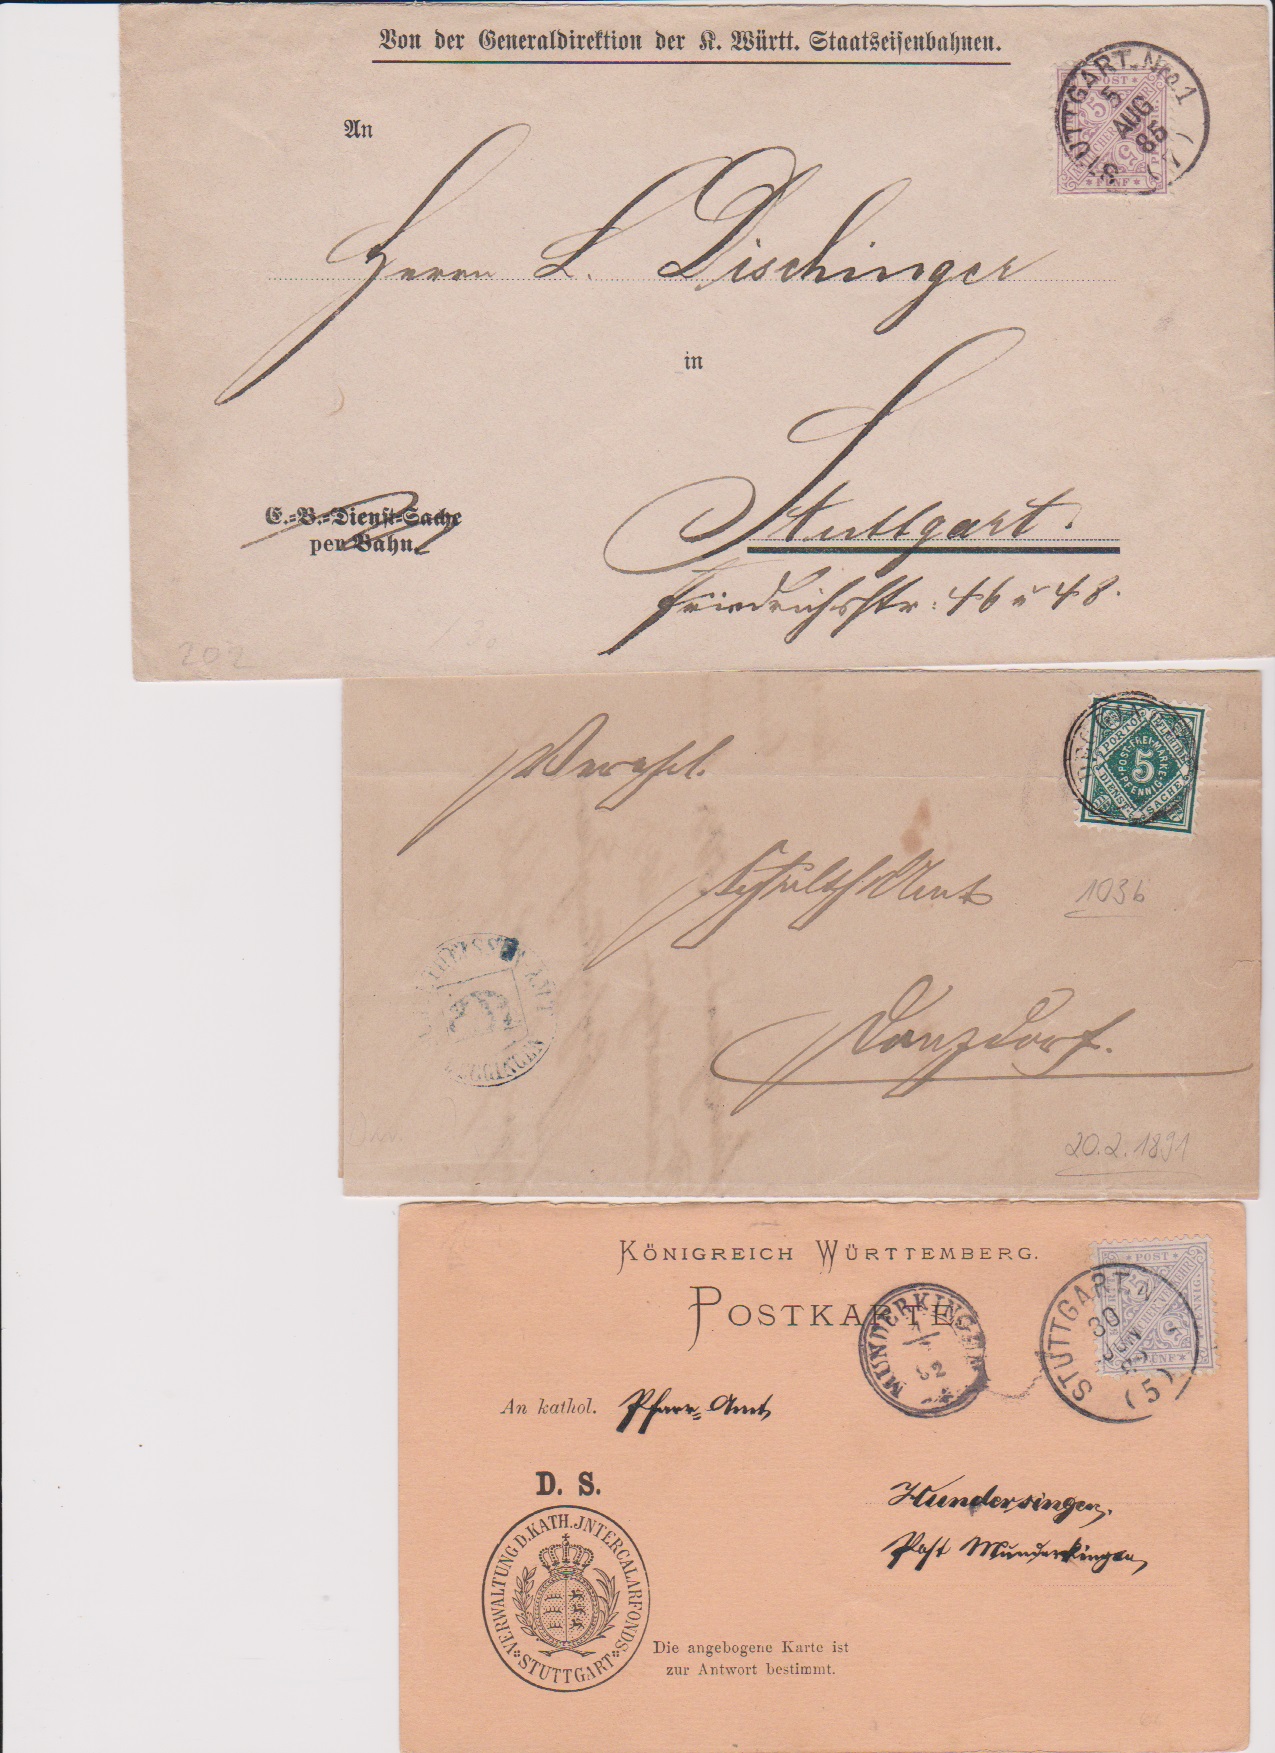 Von der Generaldirektion der K. Württ. Staatseisenbahnen.
POST
5
FÜNF
STUTTGART. Nro. 1
5
AUG
85
(7)
An
Herrn L. Dischinger
in
Stuttgart.
Friedrichsstr: 46 u 48.
E.-B.-Dienst-Sache
per Bahn.
202
PORTO
5
POST-FREI-MARKE
PFENNIG
DIENST-SACHE
1036
Donzdorf.
20.2.1891
KÖNIGREICH WÜRTTEMBERG.
POSTKARTE
MUNDERKINGEN
POST
FÜNF
STUTTGART. N
30
JUN
(5)
An kathol. Pfarr-Amt
D. S.
Hundersingen,
Post Munderkingen,
VERWALTUNG D. KATH. JNTERCALARFONDS
STUTTGART
Die angebogene Karte ist
zur Antwort bestimmt.